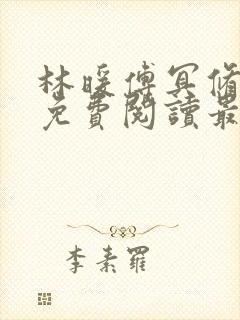 林暖傅冥脩
免費閱讀最
李素羅